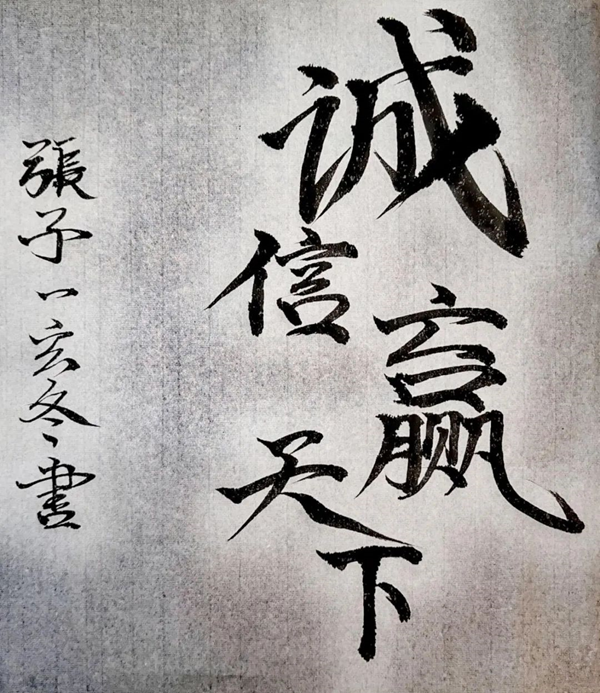 诚信赢天下
張子一亥冬書